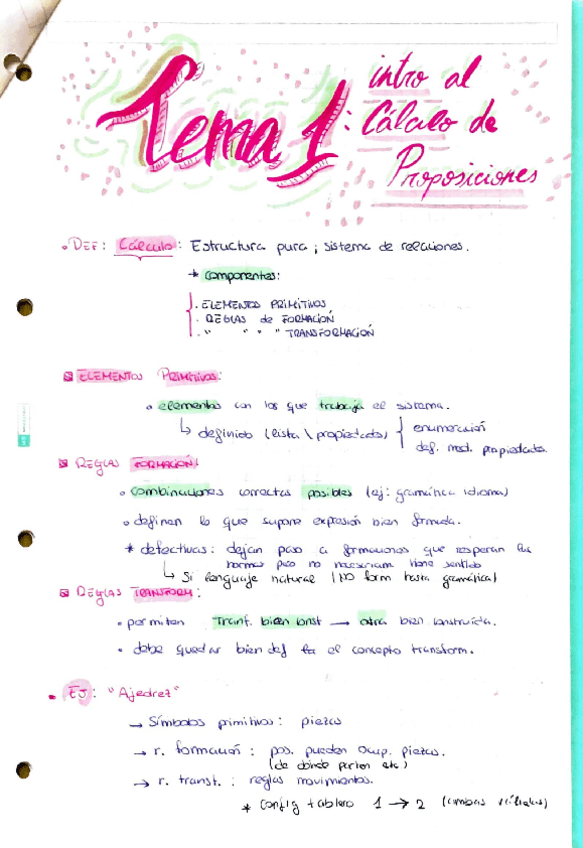 Tema 1: intro al
Cálculo de
Proposiciones
• DEF: Cálculo: Estructura pura; sistema de relaciones.
→ componentes:
· ELEMENTOS PRIMITIVOS
· REGLAS de FORMACIÓN
· " " " " TRANSFORMACIÓN
ELEMENTOS PRIMITIVOS:
• elementos con los que trabaja el sistema.
↳ definido (lista \ propiedades) { enumeración
def. med. propiedades
REGLAS FORMACIÓN:
• combinaciones correctas posibles (ej: gramática idioma)
• definen lo que supone expresión bien formada.
* defectivas: dejan paso a formaciones que respetan las
normas pero no necesariam. tiene sentido
↳ Si lenguaje natural (NO form hasta gramática)
REGLAS TRANSFORM:
• permiten Tranf. bien const → otra bien construida.
• debe quedar bien def el concepto transform.
• EJ: "Ajedrez"
→ Símbolos primitivos: piezas
→ r. formación: pos. pueden ocup. piezas.
(de dónde parten etc)
→ r. transf.: reglas movimientos.
* config tablero 1 → 2 (ambas válidas)